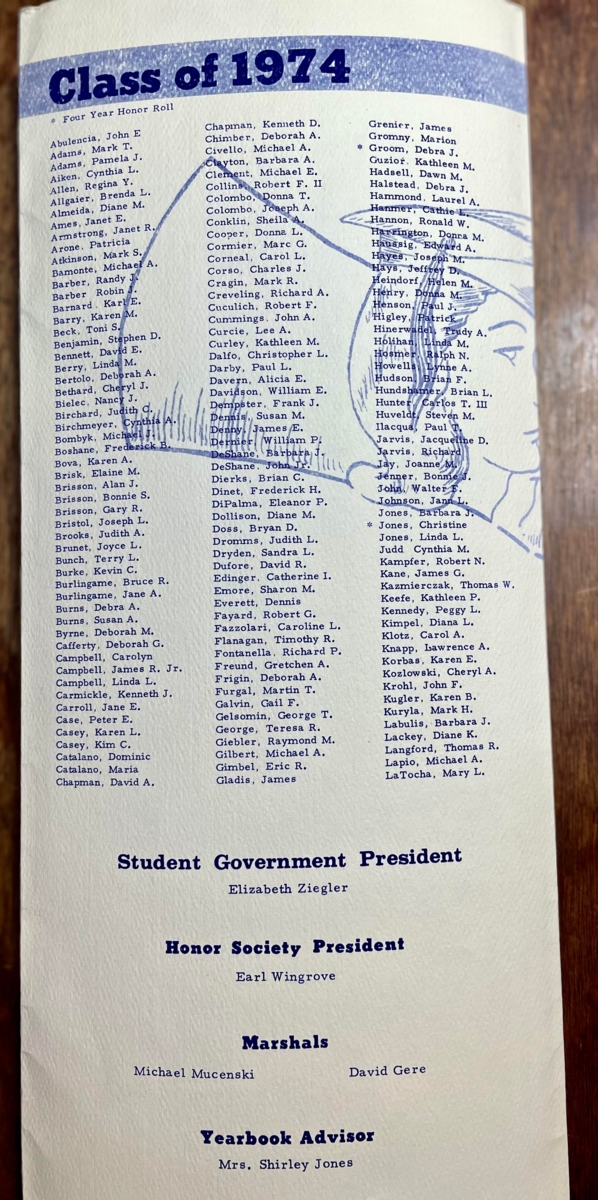 Class of 1974
* Four Year Honor Roll
Abulencia, John E
Adams, Mark T.
Adams, Pamela J.
Aiken, Cynthia L.
Allen, Regina Y.
Allgaier, Brenda L.
Almeida, Diane M.
Ames, Janet E.
Armstrong, Janet R.
Arone, Patricia
Atkinson, Mark S.
Bamonte, Michael A.
Barber, Randy J.
Barber Robin J.
Barnard, Karl E.
Barry, Karen M.
Beck, Toni S.
Benjamin, Stephen D.
Bennett, David E.
Berry, Linda M.
Bertolo, Deborah A.
Bethard, Cheryl J.
Bielec, Nancy J.
Birchard, Judith C.
Birchmeyer, Cynthia A.
Bombyk, Michael J.
Boshane, Frederick B.
Bova, Karen A.
Brisk, Elaine M.
Brisson, Alan J.
Brisson, Bonnie S.
Brisson, Gary R.
Bristol, Joseph L.
Brooks, Judith A.
Brunet, Joyce L.
Bunch, Terry L.
Burke, Kevin C.
Burlingame, Bruce R.
Burlingame, Jane A.
Burns, Debra A.
Burns, Susan A.
Byrne, Deborah M.
Cafferty, Deborah G.
Campbell, Carolyn
Campbell, James R. Jr.
Campbell, Linda L.
Carmickle, Kenneth J.
Carroll, Jane E.
Case, Peter E.
Casey, Karen L.
Casey, Kim C.
Catalano, Dominic
Catalano, Maria
Chapman, David A.
Chapman, Kenneth D.
Chimber, Deborah A.
Civello, Michael A.
Clayton, Barbara A.
Clement, Michael E.
Collins, Robert F. II
Colombo, Donna T.
Colombo, Joseph A.
Conklin, Sheila A.
Cooper, Donna L.
Cormier, Marc G.
Corneal, Carol L.
Corso, Charles J.
Cragin, Mark R.
Creveling, Richard A.
Cuculich, Robert F.
Cummings, John A.
Curcie, Lee A.
Curley, Kathleen M.
Dalfo, Christopher L.
Darby, Paul L.
Davern, Alicia E.
Davidson, William E.
Dempster, Frank J.
Dennis, Susan M.
Denny, James E.
Dermer, William P.
DeShane, Barbara J.
DeShane, John Jr.
Dierks, Brian C.
Dinet, Frederick H.
DiPalma, Eleanor P.
Dollison, Diane M.
Doss, Bryan D.
Dromms, Judith L.
Dryden, Sandra L.
Dufore, David R.
Edinger, Catherine I.
Emore, Sharon M.
Everett, Dennis
Fayard, Robert G.
Fazzolari, Caroline L.
Flanagan, Timothy R.
Fontanella, Richard P.
Freund, Gretchen A.
Frigin, Deborah A.
Furgal, Martin T.
Galvin, Gail F.
Gelsomin, George T.
George, Teresa R.
Giebler, Raymond M.
Gilbert, Michael A.
Gimbel, Eric R.
Gladis, James
Grenier, James
Gromny, Marion
* Groom, Debra J.
Guzior, Kathleen M.
Hadsell, Dawn M.
Halstead, Debra J.
Hammond, Laurel A.
Hanmer, Cathie L.
Hannon, Ronald W.
Harrington, Donna M.
Haussig, Edward A.
Hayes, Joseph M.
Hays, Jeffrey D.
Heindorf, Helen M.
Henry, Donna M.
Henson, Paul J.
Higley, Patrick
Hinerwadel, Trudy A.
Holihan, Linda M.
Hosmer, Ralph N.
Howell, Lynne A.
Hudson, Brian F.
Hundshamer, Brian L.
Hunter, Carlos T. III
Huveldt, Steven M.
Ilacqua, Paul T.
Jarvis, Jacqueline D.
Jarvis, Richard
Jay, Joanne M.
Jenner, Bonnie J.
John, Walter F.
Johnson, Jann L.
Jones, Barbara J.
* Jones, Christine
Jones, Linda L.
Judd Cynthia M.
Kampfer, Robert N.
Kane, James G.
Kazmierczak, Thomas W.
Keefe, Kathleen P.
Kennedy, Peggy L.
Kimpel, Diana L.
Klotz, Carol A.
Knapp, Lawrence A.
Korbas, Karen E.
Kozlowski, Cheryl A.
Krohl, John F.
Kugler, Karen B.
Kuryla, Mark H.
Labulis, Barbara J.
Lackey, Diane K.
Langford, Thomas R.
Lapio, Michael A.
LaTocha, Mary L.
Student Government President
Elizabeth Ziegler
Honor Society President
Earl Wingrove
Marshals
Michael Mucenski David Gere
Yearbook Advisor
Mrs. Shirley Jones